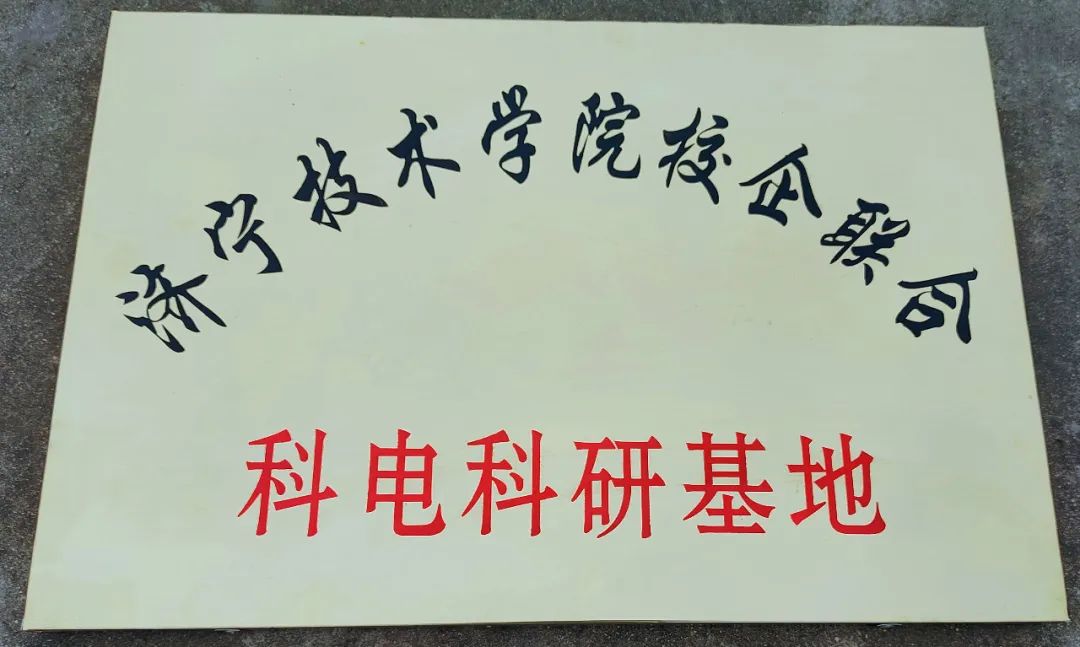 济宁技术学院校企联合
科电科研基地